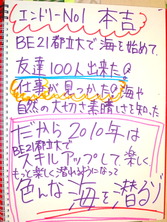 エントリーNo1 本吉
BE21都立大で海を始めて、
友達100人出来た♂
仕事が見つかった♂海や
自然の大切さ素晴しさを知った
だから2010年は
BE21都立大で
スキルアップして楽しく
もっと楽しく潜れるようになって
色んな海を潜る